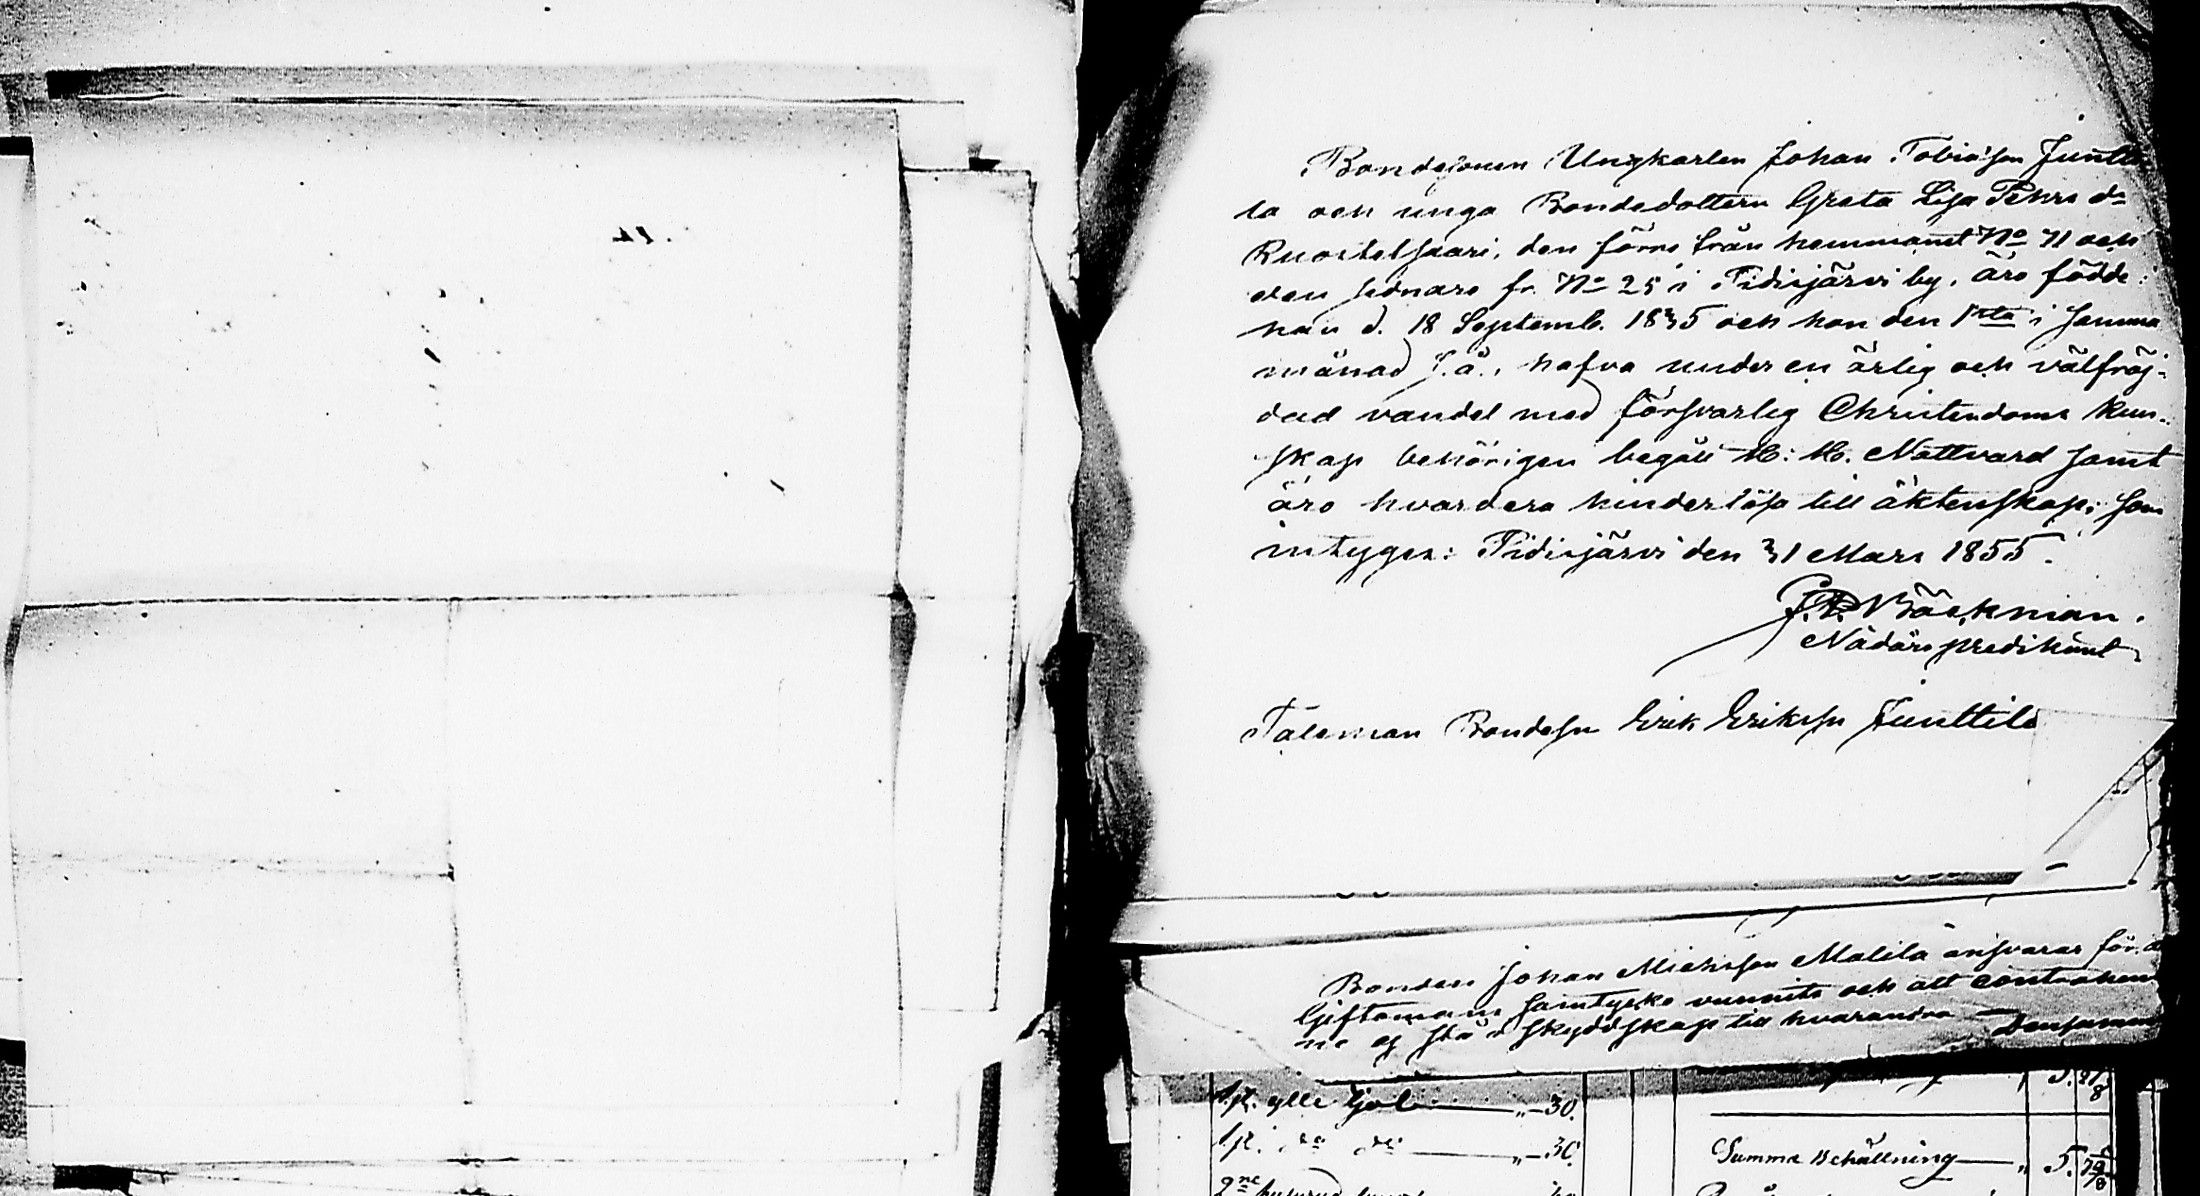 Bondesonen Ungkarlen Johan Tobiasson Juntti
la och unga Bondedottern Greta Lisa Pehrs dr
Ruostelsaari, den förre från hemmanet No 71 och
den sednare fr. No 25 i Pidisjärvi by, äro födde:
han d. 18 Septemb. 1835 och hon den 1sta i samma
månad s. å., hafva under en ärlig och välfräj-
dad vandel med försvarlig Christendoms kun-
skap behörigen begått H. H. Nattvard samt
äro hvardera hinderlösa till äktenskap; som
intygas: Pidisjärvi den 31 Mars 1855.
Bäckman.
Nådårspredikant
Taleman Bondesn Erik Eriksn Junttila
Bonden Johan Michelson Malila ansvarar för
Giftomans samtycke vunnits och att contrahen
ne ej stå i skyldskap till hvarandra
1 st. ylle kjol „—30.
1 st. do do „—30.
Summa Behållning 5.